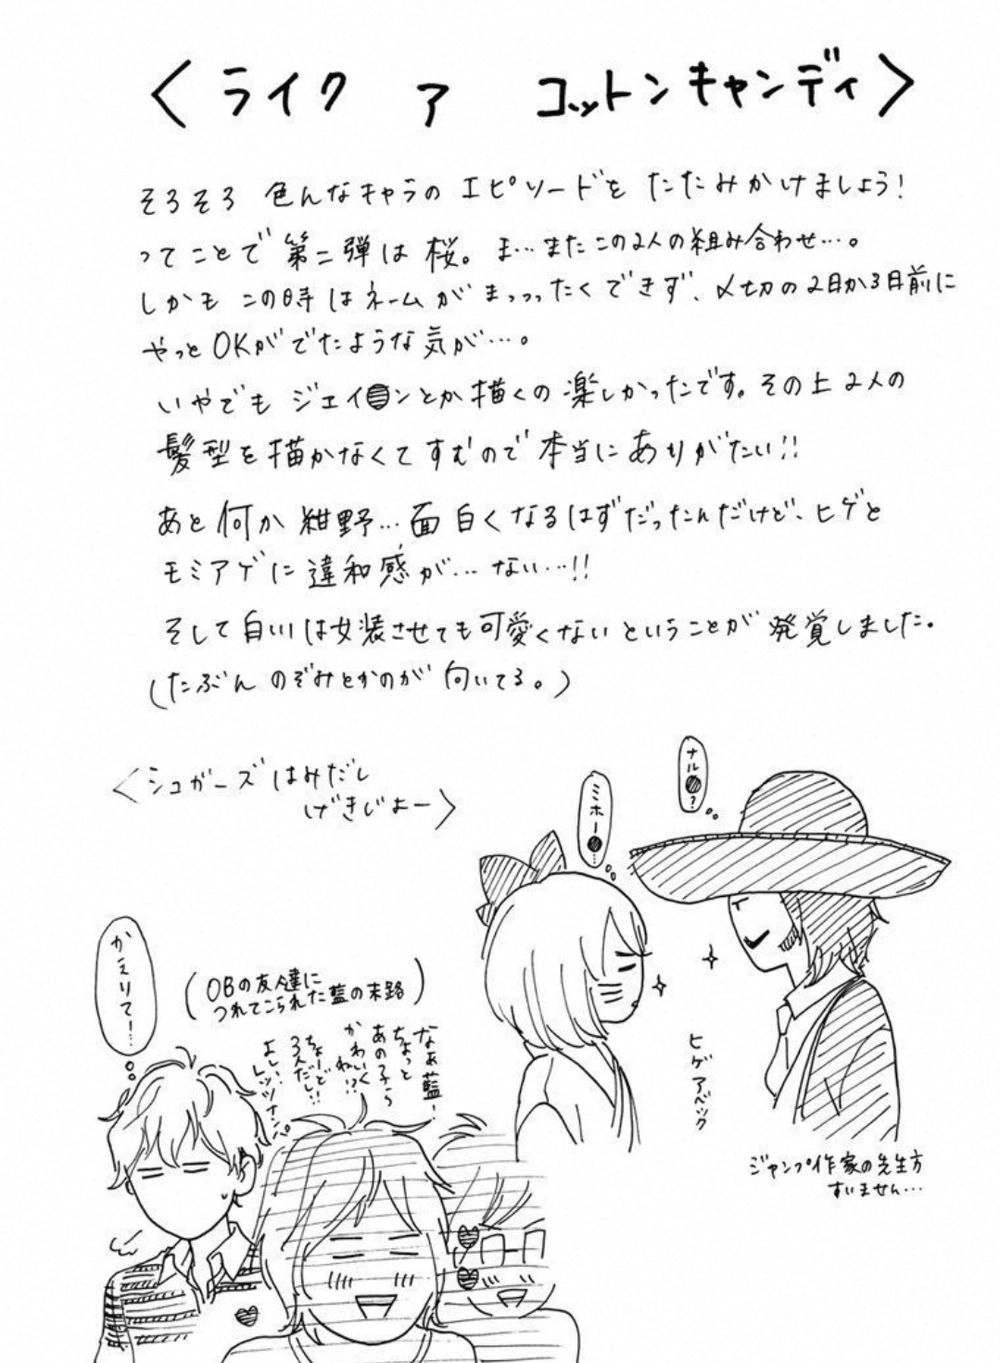 <ライク ア コットンキャンディ>
そろそろ 色んなキャラの エピソードを たたみかけましょう!
ってことで 第二弾は 桜。ま…またこの2人の組み合わせ…。
しかも この時はネームが まっっったくできず、〆切の2日か3日前に
やっとOKがでたような気が…。
いやでも ジェイ●ンとか描くの楽しかったです。その上2人の
髪型を描かなくてすむので本当にありがたい!!
あと何か 紺野…面白くなるはずだったんだけど、ヒゲと
モミアゲに違和感が…ない…!!
そして白川は女装させても可愛くないということが発覚しました。
(たぶん のぞみとかのが 向いてる。)
<シュガーズはみだし
げきじょー>
ナル●?
ミホー●…
かえりて…!
(OBの友人達に
つれてこられた藍の末路)
なぁ藍!
ちょっと
あの子ら
かわいく
ね!?
ちょーど
3人だし!!
よし、
レッツナンパ
ヒゲアベック
ジャンプ作家の先生方
すいません…